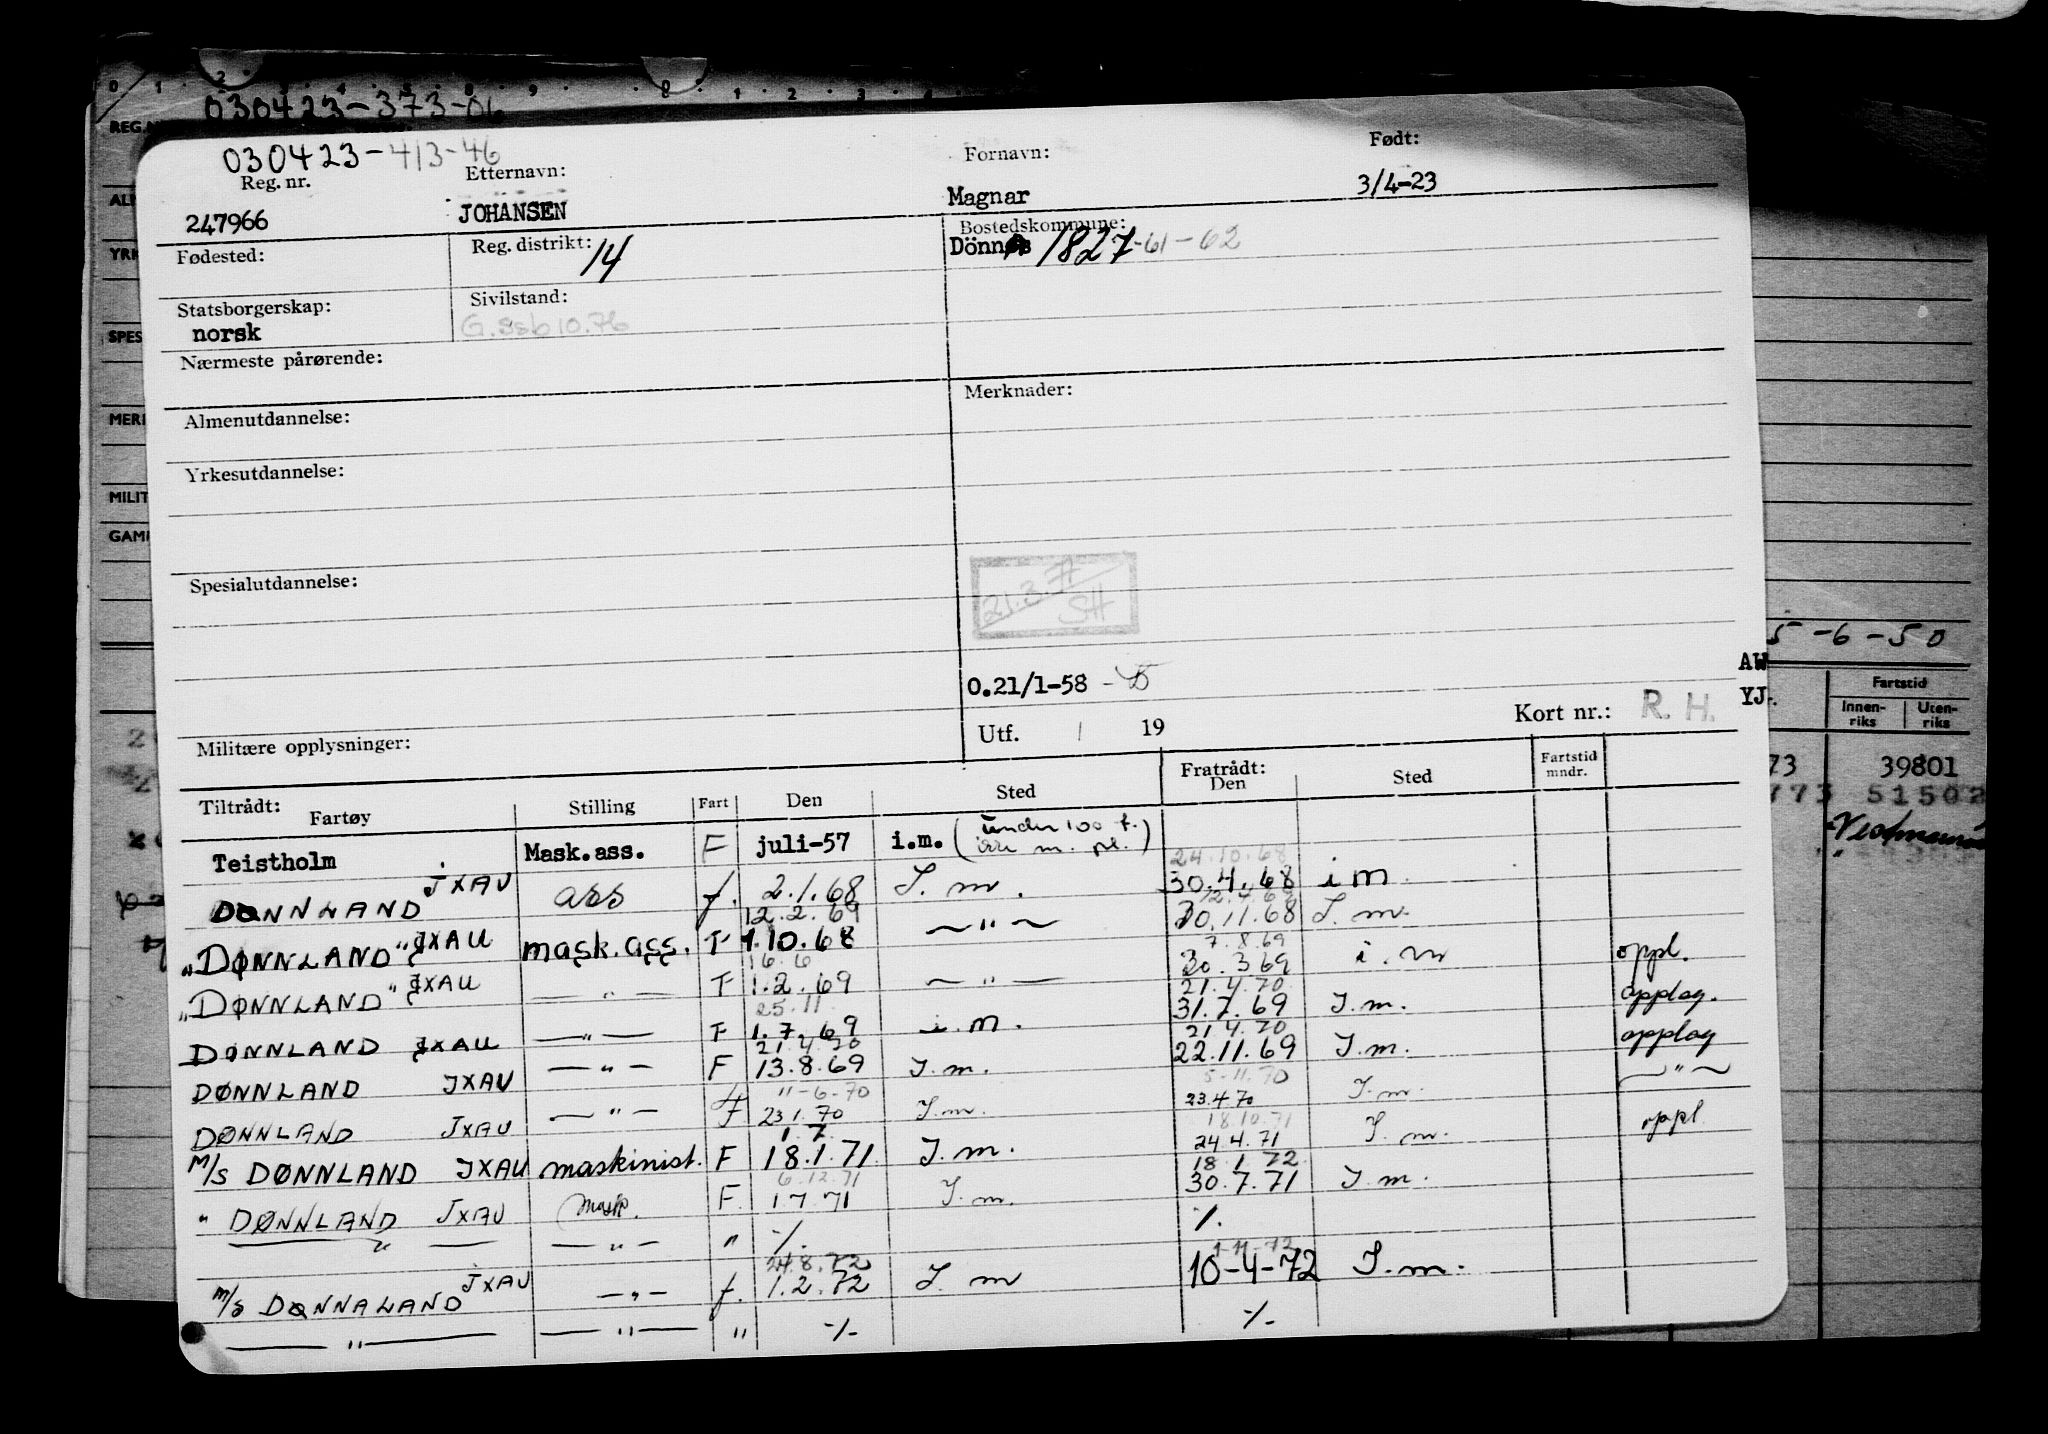 030423-373-06
REG.N
030423-413-46
Reg. nr. Etternavn: Fornavn: Født:
247966 JOHANSEN Magnar 3/4-23
Fødested: Reg. distrikt: 14 Bostedskommune:
Dönnes 1827-61-62
Statsborgerskap: Sivilstand:
norsk G.Ssb 10.76
Nærmeste pårørende:
Almenutdannelse: Merknader:
Yrkesutdannelse:
Spesialutdannelse:
21.3.77
SH
5-6-50
0.21/1-58
AW
YJ.
Militære opplysninger: Utf. / 19 Kort nr.: R. H.
Fartstid
Innen-riks Uten-riks
73 39801
773 51502
Tiltrådt: Fratrådt:
Fartøy Stilling Fart Den Sted Den Sted Fartstid mndr.
Teistholm Mask.ass. F juli-57 i.m. (under 100 t.
24.10.68
DØNNLAND JXAU ass f. 2.1.68 I. m. 30.4.68 i m.
12.2.69 12.4.69
"DØNNLAND" JXAU mask.ass. F 1.10.68 — " — 30.11.68 I. m.
16.6 7.8.69
"DØNNLAND" JXAU — " — F 1.2.69 — " — 30.3 69 i. m oppl.
25.11 21.4.70
DØNNLAND JXAU — " — F 1.7.69 i.m. 31.7.69 I.m. opplag.
21.4.70 21.4.70
DØNNLAND JXAU — " — F 13.8.69 I.m. 22.11.69 I.m. opplag
11-6-70 5-11.70
DØNNLAND JXAU — " — f 23 1.70 I.m. 23.4.70 I.m. — " —
1.7. 18.10.71
M/S DØNNLAND JXAU maskinist. F 18.1.71 I.m. 24.4.71 I. m. oppl
6.12.71 18.1.72
" DØNNLAND JXAU mask. F. 1.7.71 I.m. 30.7.71 I.m.
— " — — " — " -/. -/.
24.8.72 1-11-72
M/S DØNNALAND JXAU — " — f. 1.2.72 I. m 10-4-72 I.m.
— " — — " — " -/- -/-